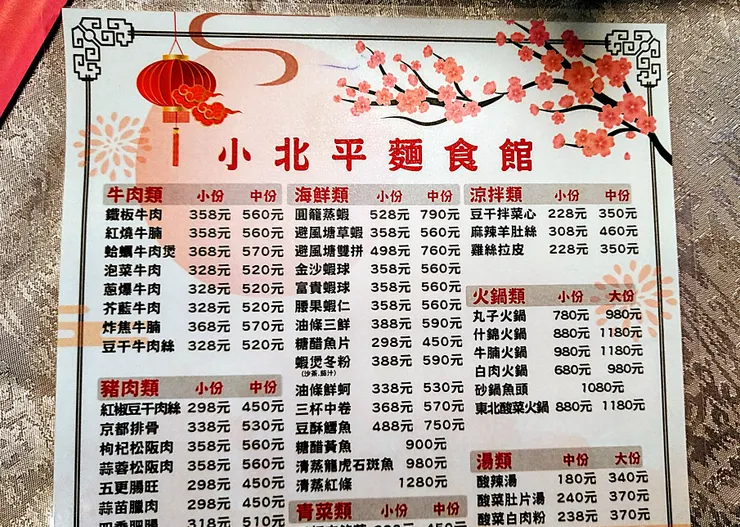 小北平麵食館
牛肉類 小份 中份
鐵板牛肉 358元 560元
紅燒牛腩 358元 560元
蛤蠣牛肉煲 368元 570元
泡菜牛肉 328元 520元
蔥爆牛肉 328元 520元
芥藍牛肉 328元 520元
炸焦牛腩 368元 570元
豆干牛肉絲 328元 520元
豬肉類 小份 中份
紅椒豆干肉絲 298元 450元
京都排骨 338元 530元
枸杞松阪肉 358元 560元
蒜蓉松阪肉 358元 560元
五更腸旺 298元 450元
蒜苗臘肉 298元 450元
318元 510元
海鮮類 小份 中份
圓籠蒸蝦 528元 790元
避風塘草蝦 358元 560元
避風塘雙拼 498元 760元
金沙蝦球 358元 560元
富貴蝦球 358元 560元
腰果蝦仁 358元 560元
油條三鮮 388元 590元
糖醋魚片 298元 450元
蝦煲冬粉 388元 590元
(沙茶.茄汁)
油條鮮蚵 338元 530元
三杯中卷 368元 570元
豆酥鱈魚 488元 750元
糖醋黃魚 900元
清蒸龍虎石斑魚 980元
清蒸紅條 1280元
青菜類 小份 中份
涼拌類 小份 中份
豆干拌菜心 228元 350元
麻辣羊肚絲 308元 460元
雞絲拉皮 228元 350元
火鍋類 小份 大份
丸子火鍋 780元 980元
什錦火鍋 880元 1180元
牛腩火鍋 980元 1180元
白肉火鍋 680元 980元
砂鍋魚頭 1080元
東北酸菜火鍋 880元 1180元
湯類 中份 大份
酸辣湯 180元 340元
酸菜肚片湯 240元 370元
酸菜白肉粉 238元 370元